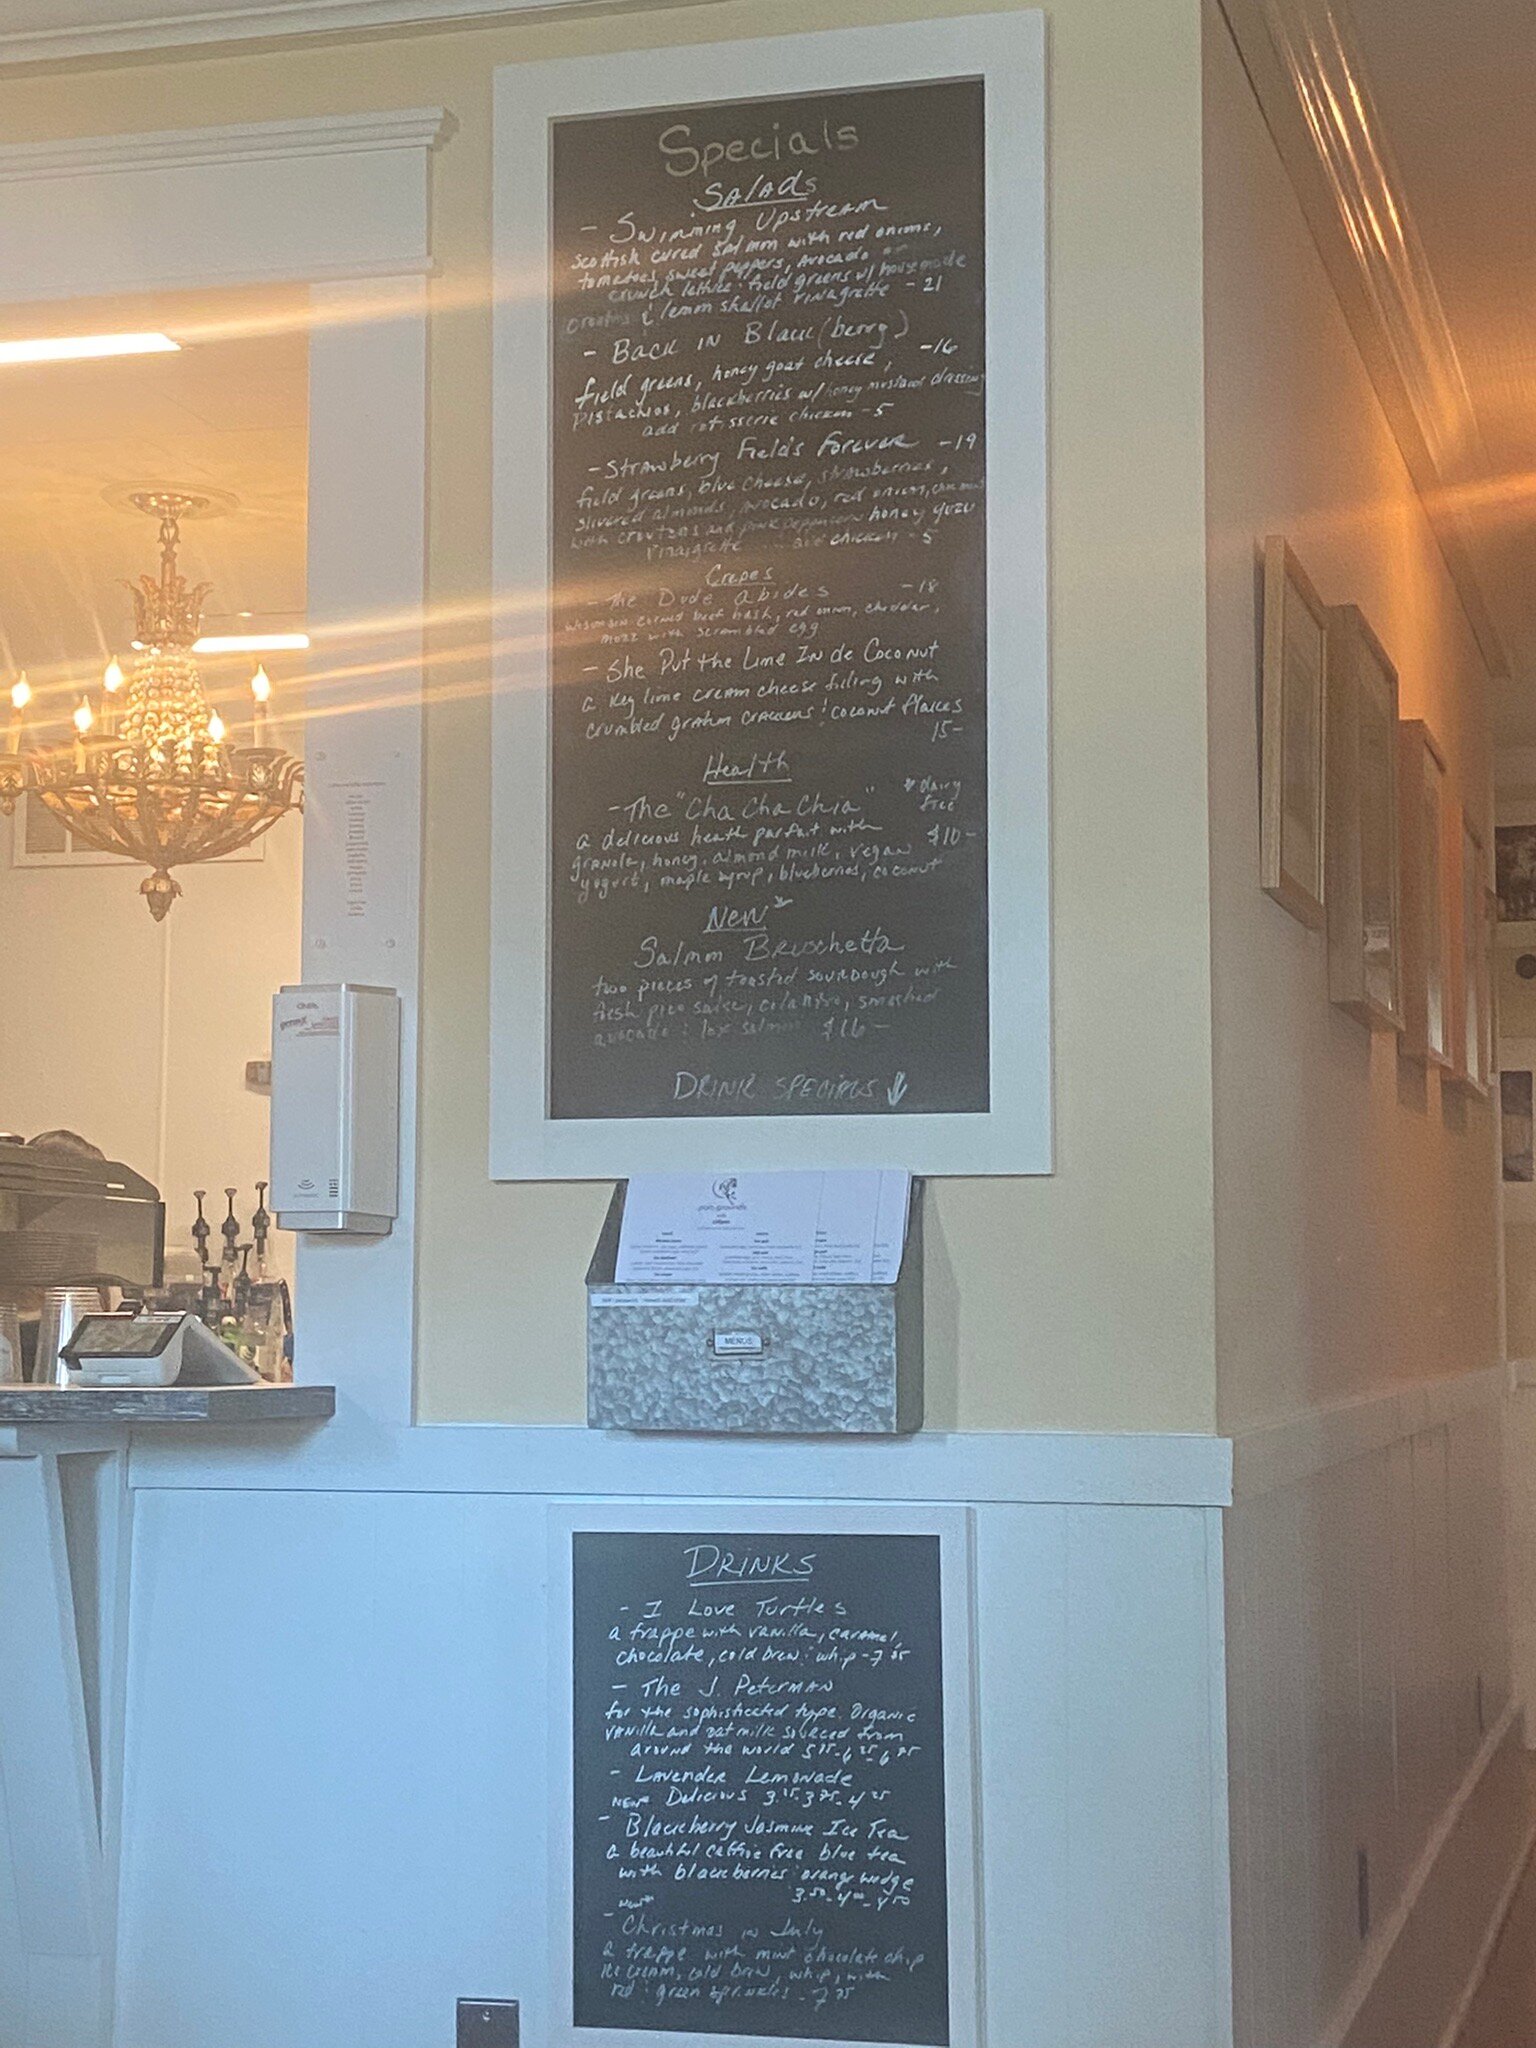 Specials
Salads
- Swimming Upstream
Scottish cured salmon with red onions,
tomatoes, sweet peppers, avocado on
crunch lettuce & field greens w/ housemade
croutons & lemon shallot vinagrette - 21
- Back in Black (berry)
field greens, honey goat cheese, -16
pistachios, blackberries w/ honey mustard dressing
add rotisserie chicken - 5
- Strawberry Fields Forever -19
field greens, blue cheese, strawberries,
slivered almonds, avocado, red onion,
with croutons and pink peppercorn honey yuzu
vinaigrette add chicken - 5
Crepes
- The Dude Abides -18
corned beef hash, red onion, cheddar,
mozz with scrambled egg
- She Put the Lime In de Coconut
a key lime cream cheese filling with
crumbled graham crackers & coconut flakes
15-
Health
- The "Cha Cha Chia" * dairy
free
a delicious heath parfait with $10-
granola, honey, almond milk, vegan
yogurt, maple syrup, blueberries, coconut
New*
Salmon Bruschetta
two pieces of toasted sourdough with
fresh pico salsa, smashed
avocado & lox salmon $16-
Drink Specials ↓
MENUS
DRINKS
- I Love Turtles
a frappe with vanilla, caramel,
chocolate, cold brew & whip - 7
- The J. Peterman
for the sophisticated type. Organic
vanilla and oat milk sourced from
around the world
- Lavender Lemonade
New* Delicious
- Blackberry Jasmine Ice Tea
a beautiful caffine free blue tea
with blackberries & orange wedge
3.50 - 4.00 - 4.50
New*
- Christmas in July
a frappe with mint chocolate chip
ice cream, cold brew, whip, with
red & green sprinkles - 7